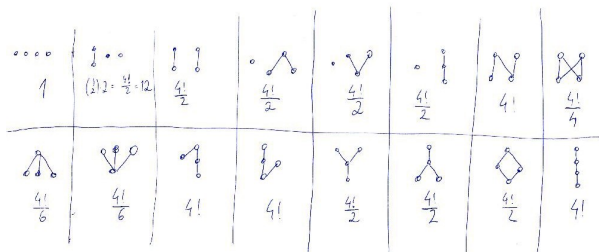 1
(4/2) 2 = 4!/2 = 12
4!/2
4!/2
4!/2
4!/2
4!
4!/4
4!/6
4!/6
4!
4!
4!/2
4!/2
4!/2
4!